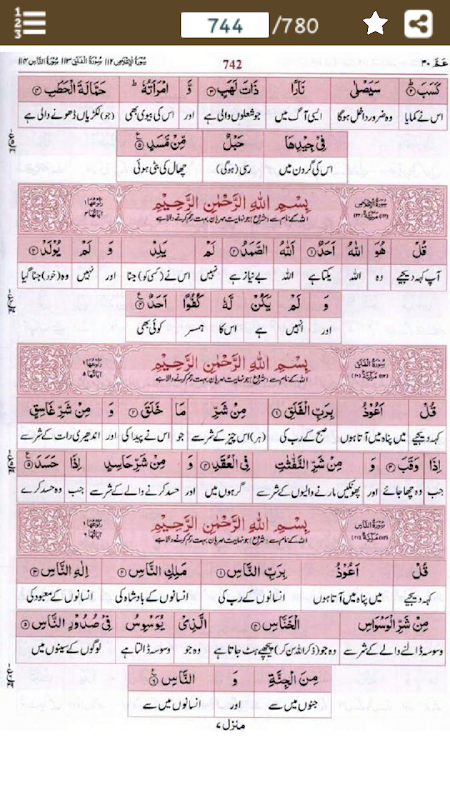 123 744 /780
عَمَّ ۳۰ 742 سُورَةُ الْاِخْلَاص ۱۱۲ سُورَةُ الْفَلَق ۱۱۳ سُورَةُ النَّاس ۱۱۴
كَسَبَ سَيَصْلٰى نَارًا ذَاتَ لَهَبٍ وَّ امْرَاَتُهٗ حَمَّالَةَ الْحَطَبِ
اس نے کمایا وہ ضرور داخل ہوگا ایسی آگ میں جو شعلوں والی ہے اور اس کی بیوی بھی (جو) لکڑیاں ڈھونے والی ہے
فِيْ جِيْدِهَا حَبْلٌ مِّنْ مَّسَدٍ
اس کی گردن میں رسی (ہوگی) چھال کی بٹی ہوئی
بِسْمِ اللهِ الرَّحْمٰنِ الرَّحِيْمِ
اللہ کے نام سے (شروع) جو نہایت مہربان بہت رحم کرنے والا ہے
قُلْ هُوَ اللهُ اَحَدٌ اَللهُ الصَّمَدُ لَمْ يَلِدْ وَ لَمْ يُوْلَدْ
آپ کہہ دیجیے وہ اللہ یکتا ہے اللہ بے نیاز ہے نہیں اس نے (کسی کو) جنا اور نہیں وہ (خود) جنا گیا
وَ لَمْ يَكُنْ لَّهٗ كُفُوًا اَحَدٌ
اور نہیں ہے اس کا ہمسر کوئی بھی
بِسْمِ اللهِ الرَّحْمٰنِ الرَّحِيْمِ
اللہ کے نام سے (شروع) جو نہایت مہربان بہت رحم کرنے والا ہے
قُلْ اَعُوْذُ بِرَبِّ الْفَلَقِ مِنْ شَرِّ مَا خَلَقَ وَ مِنْ شَرِّ غَاسِقٍ
کہہ دیجیے میں پناہ میں آتا ہوں صبح کے رب کی (ہر) اس چیز کے شر سے جو اس نے پیدا کی اور اندھیری رات کے شر سے
اِذَا وَقَبَ وَ مِنْ شَرِّ النَّفّٰثٰتِ فِي الْعُقَدِ وَ مِنْ شَرِّ حَاسِدٍ اِذَا حَسَدَ
جب وہ چھا جائے اور پھونکیں مارنے والیوں کے شر سے گرہوں میں اور حسد کرنے والے کے شر سے جب وہ حسد کرے
بِسْمِ اللهِ الرَّحْمٰنِ الرَّحِيْمِ
اللہ کے نام سے (شروع) جو نہایت مہربان بہت رحم کرنے والا ہے
قُلْ اَعُوْذُ بِرَبِّ النَّاسِ مَلِكِ النَّاسِ اِلٰهِ النَّاسِ
کہہ دیجیے میں پناہ میں آتا ہوں انسانوں کے رب کی انسانوں کے بادشاہ کی انسانوں کے معبود کی
مِنْ شَرِّ الْوَسْوَاسِ الْخَنَّاسِ الَّذِيْ يُوَسْوِسُ فِيْ صُدُوْرِ النَّاسِ
وسوسہ ڈالنے والے کے شر سے وہ جو (ذکر اللہ سن کر) پیچھے ہٹ جاتا ہے وہ جو وسوسہ ڈالتا ہے لوگوں کے سینوں میں
مِنَ الْجِنَّةِ وَ النَّاسِ
جنوں میں سے اور انسانوں میں سے
منزل ۷